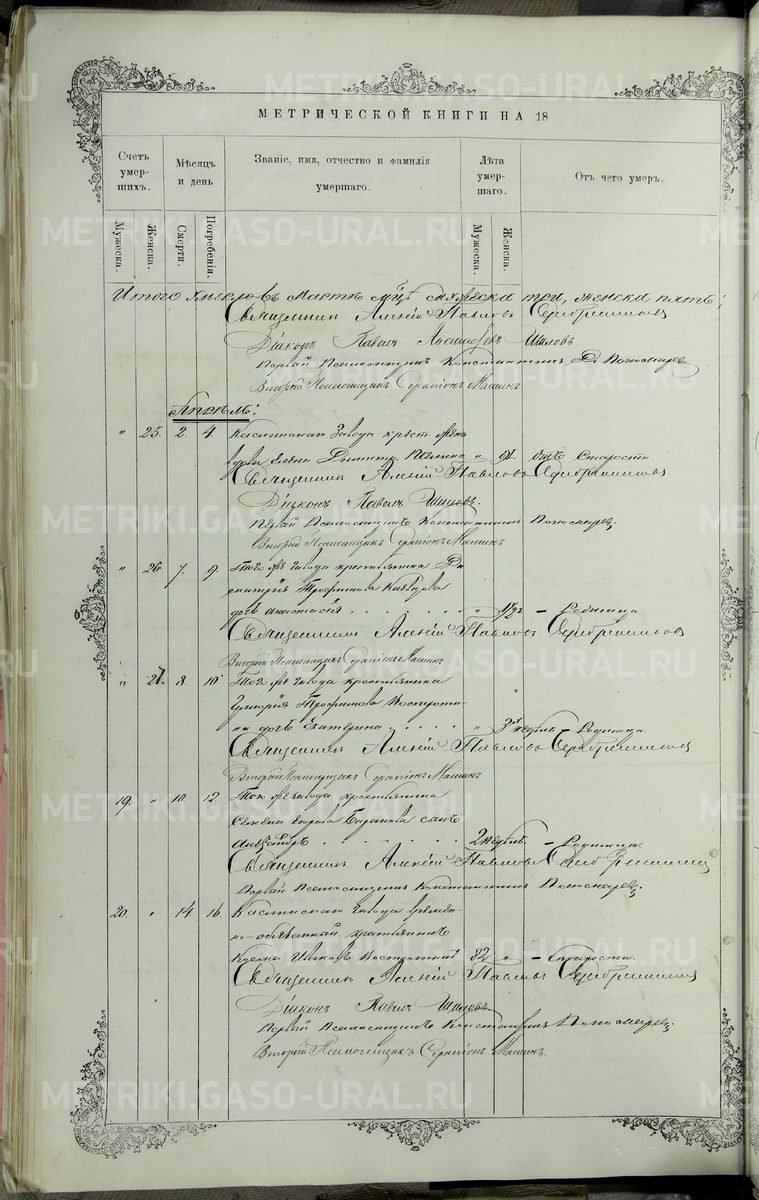 МЕТРИЧЕСКОЙ КНИГИ НА 18
Счетъ умер-шихъ.
Мужеска.
Женска.
Мѣсяцъ и день
Смерти.
Погребенія.
Званіе, имя, отчество и фамилія умершаго.
Лѣта умер-шаго.
Мужеска.
Женска.
Отъ чего умеръ.
Итого умерло въ Мартѣ м-цѣ мужеска три, женска пять;
Священникъ Алексій Павловъ Серебренниковъ
Діаконъ Павелъ Шиловъ
Первый Псаломщикъ Константинъ Д. Пономаревъ
Второй Псаломщикъ Серапіонъ Машинъ
Апрель:
" 25. 2. 4. Каслинскаго Завода крест. жена
вдова Елена Дмитр. " 91. отъ Старости
Священникъ Алексій Павловъ Серебренниковъ
Діаконъ Павелъ Шиловъ.
Первый Псаломщикъ Константинъ Пономаревъ.
Второй Псаломщикъ Серапіонъ Машинъ
" 26. 7. 9. Того же завода крестьянина Ди
митрія Трофимова
дочь Анастасія " 1/2 г. – Родимца
Священникъ Алексій Павловъ Серебренниковъ
Второй Псаломщикъ Серапіонъ Машинъ
" 27. 8. 10 Того же завода крестьянина
Григорія Трофимова Востроти-
на дочь Екатерина " 3 недѣль – Родимца.
Священникъ Алексій Павловъ Серебренниковъ
Второй Псаломщикъ Серапіонъ Машинъ
19. " 10. 12. Того же завода крестьянина
Семена Егорова Баранова сынъ
Александръ 2 недѣль. – Родимца.
Священникъ Алексій Павловъ Серебренниковъ
Первый Псаломщикъ Константинъ Пономаревъ.
20. " 14. 16. Каслинскаго Завода времен-
но-обязанный крестьянинъ
Востротинъ 82 " – Старости.
Священникъ Алексій Павловъ Серебренниковъ
Діаконъ Павелъ Шиловъ.
Первый Псаломщикъ Константинъ Пономаревъ.
Второй Псаломщикъ Серапіонъ Машинъ.
METRIKI.GASO-URAL.RU